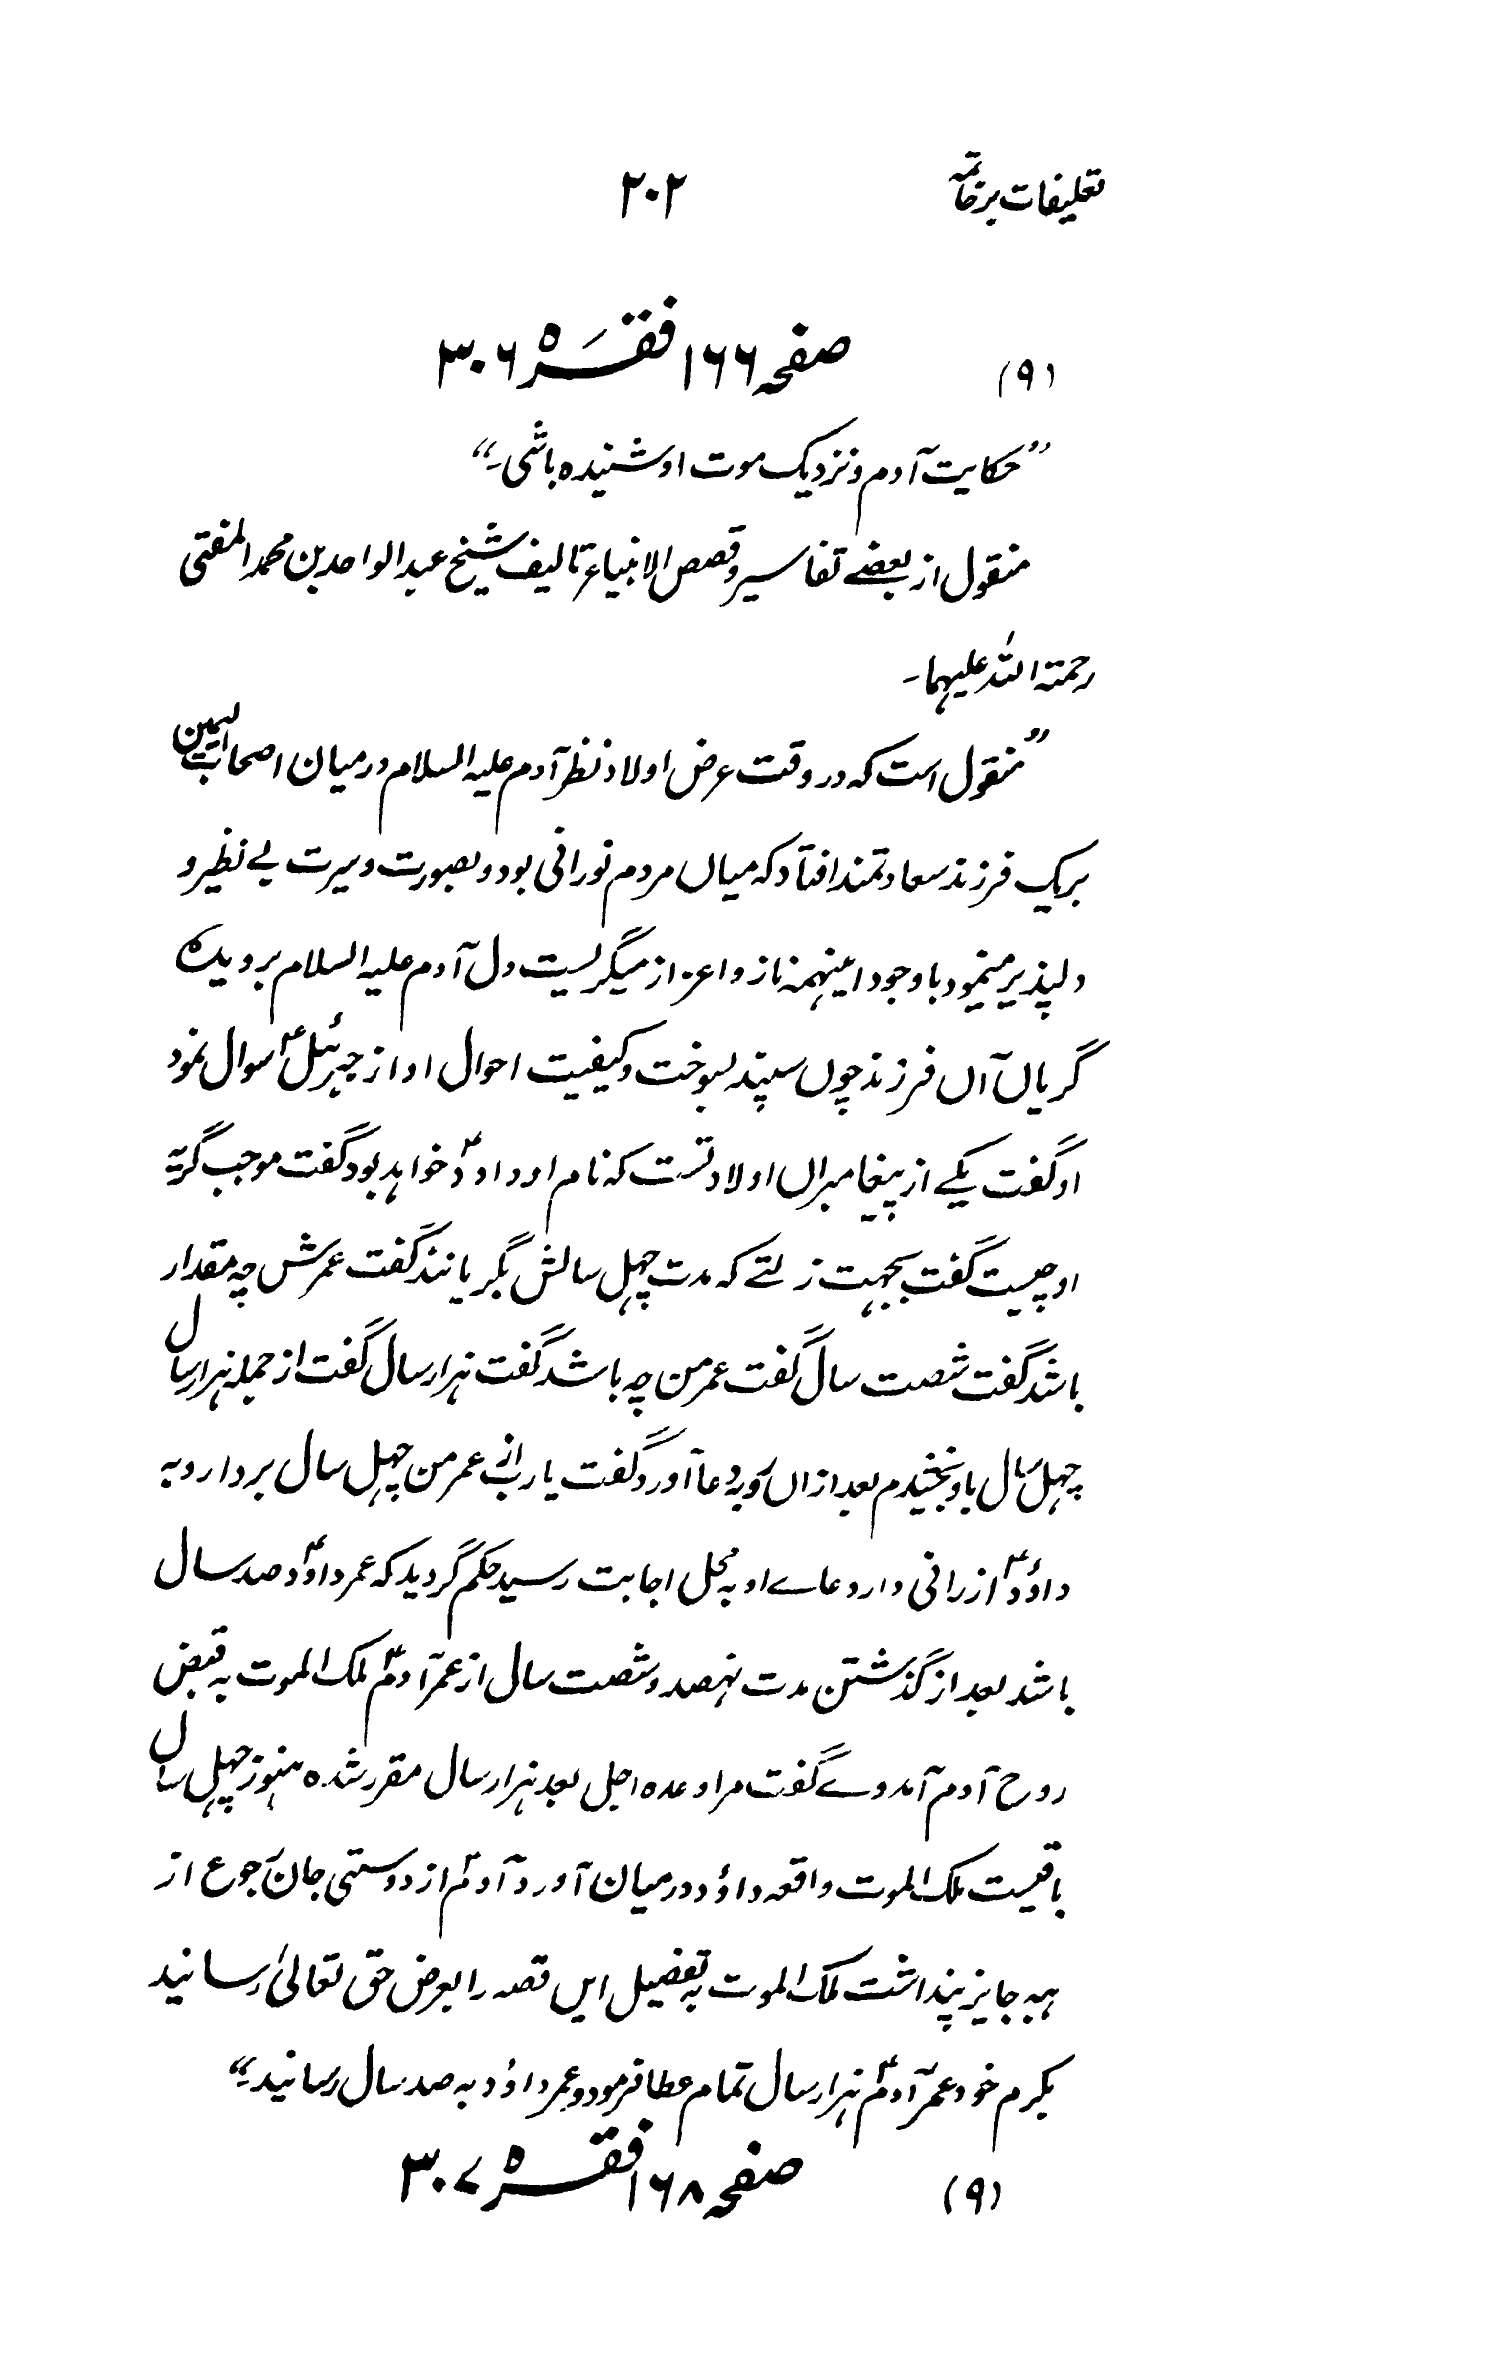 تعلیقات بر خاتمہ ۲۰۲
(۹) صفحہ ۱۶۶ فقرہ ۳۰۶
”حکایت آدم و نزدیک موت او شنیدہ باشی۔“
منقول از بعضے تفاسیر و قصص الانبیاء تالیف شیخ عبدالواحد بن محمد المفتی
رحمتہ اللہ علیہما۔
”منقول است کہ در وقت عرض اولاد نظر آدم علیہ السلام درمیان اصحاب الیمین
بریک فرزند سعادتمند افتاد کہ میاں مردم نورانی بود و بصورت و سیرت بے نظیر و
دلپذیر مینمود با وجود اینہمہ ناز و اعزاز میگریست دل آدم علیہ السلام بر دیدہ
گریاں آں فرزند چوں سپند بسوخت و کیفیت احوال او از جبرئیلؑ سوال نمود
او گفت یکے از پیغامبراں اولاد تست کہ نام او داودؑ خواہد بود گفت موجب گریہ
او چیست گفت بجہت زلتے کہ مدت چہل سالش بگریانند گفت عمرش چہ مقدار
باشد گفت شصت سال گفت عمر من چہ باشد گفت ہزار سال گفت از جملہ ہزار سال
چہل سال باو بخشیدم بعد ازاں رو بدعا آورد گفت یا رب از عمر من چہل سال بردار و بہ
داؤدؑ ارزانی دار دعاے او بہ محل اجابت رسید حکم گردید کہ عمر داؤدؑ صد سال
باشد بعد از گذشتن مدت نہصد و شصت سال از عمر آدمؑ ملک الموت بہ قبض
روح آدم آمد وے گفت مرا وعدہ اجل بعد ہزار سال مقرر شدہ ہنوز چہل سال
باقیست ملک الموت واقعہ داؤد درمیان آورد آدمؑ از دوستی جان رجوع از
ہبہ جایز پنداشت ملک الموت بہ تفصیل ایں قصہ را بعرض حق تعالیٰ رسانید
بکرم خود عمر آدمؑ ہزار سال تمام عطا فرمود و عمر داؤد بہ صد سال رسانید۔“
(۹) صفحہ ۱۶۸ فقرہ ۳۰۷